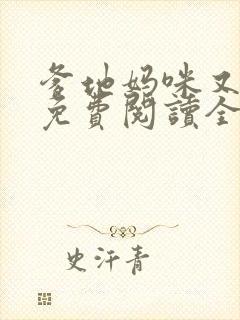 爹地妈咪又
免費閱讀全
史汗青